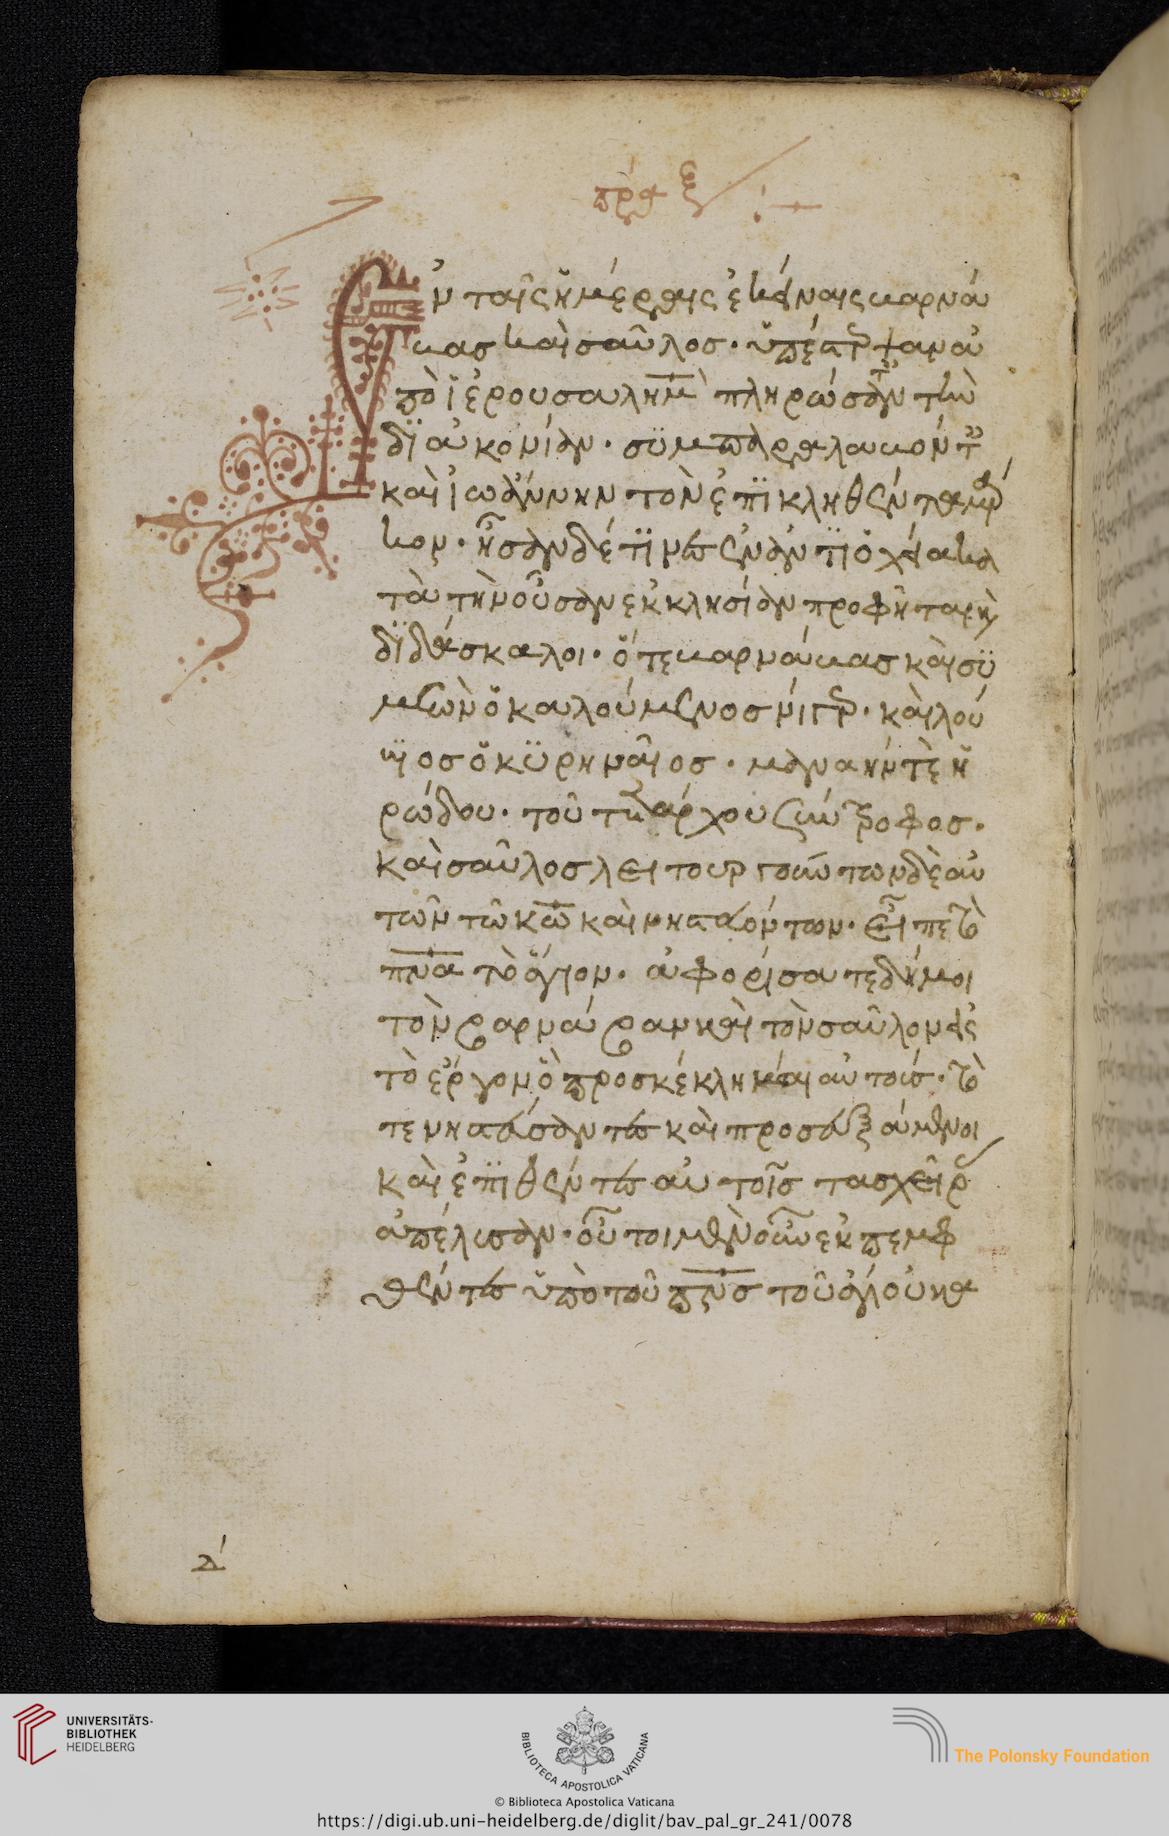 ἐν ταῖς ἡμέραις ἐκείναις βαρνά
βας καὶ σαῦλος· ὑπέστρεψαν ἀ
πὸ ἱερουσαλημ πληρώσαντ τὴν
διακονίαν· συμπαραλαβόντ
καὶ ἰωάννην τὸν ἐπικληθέντα μάρ
κον· ἦσαν δέ τινες ἐν ἀντιοχεία κα
τὰ τὴν οὖσαν ἐκκλησίαν προφῆται κ
διδάσκαλοι· ὅ τε βαρνάβας καὶ συ
μεὼν ὁ καλούμενος νίγερ· καὶ λού
κιος ὁ κυρηναῖος· μαναήν τε ἡ
ρώδου· τοῦ τετράρχου σύντροφος·
καὶ σαῦλος λειτουργούντων δὲ αὐ
τῶν τῶ κω καὶ νηστευόντων· εἶπε τὸ
πνα τὸ ἅγιον· ἀφορίσατε δή μοι
τὸν βαρνάβαν καὶ τὸν σαῦλον εἰς
τὸ ἔργον ὃ προσκέκλημαι αὐτούς· τό
τε νηστεύσαντες καὶ προσευξάμενοι
καὶ ἐπιθέντες αὐτοῖς τὰς χεῖρ
ἀπέλυσαν· οὗτοι μὲν οὖν ἐκπεμφ
θέντες ὑπὸ τοῦ πνς τοῦ ἁγίου κα
UNIVERSITÄTS-
BIBLIOTHEK
HEIDELBERG
BIBLIOTECA APOSTOLICA VATICANA
The Polonsky Foundation
© Biblioteca Apostolica Vaticana
https://digi.ub.uni-heidelberg.de/diglit/bav_pal_gr_241/0078